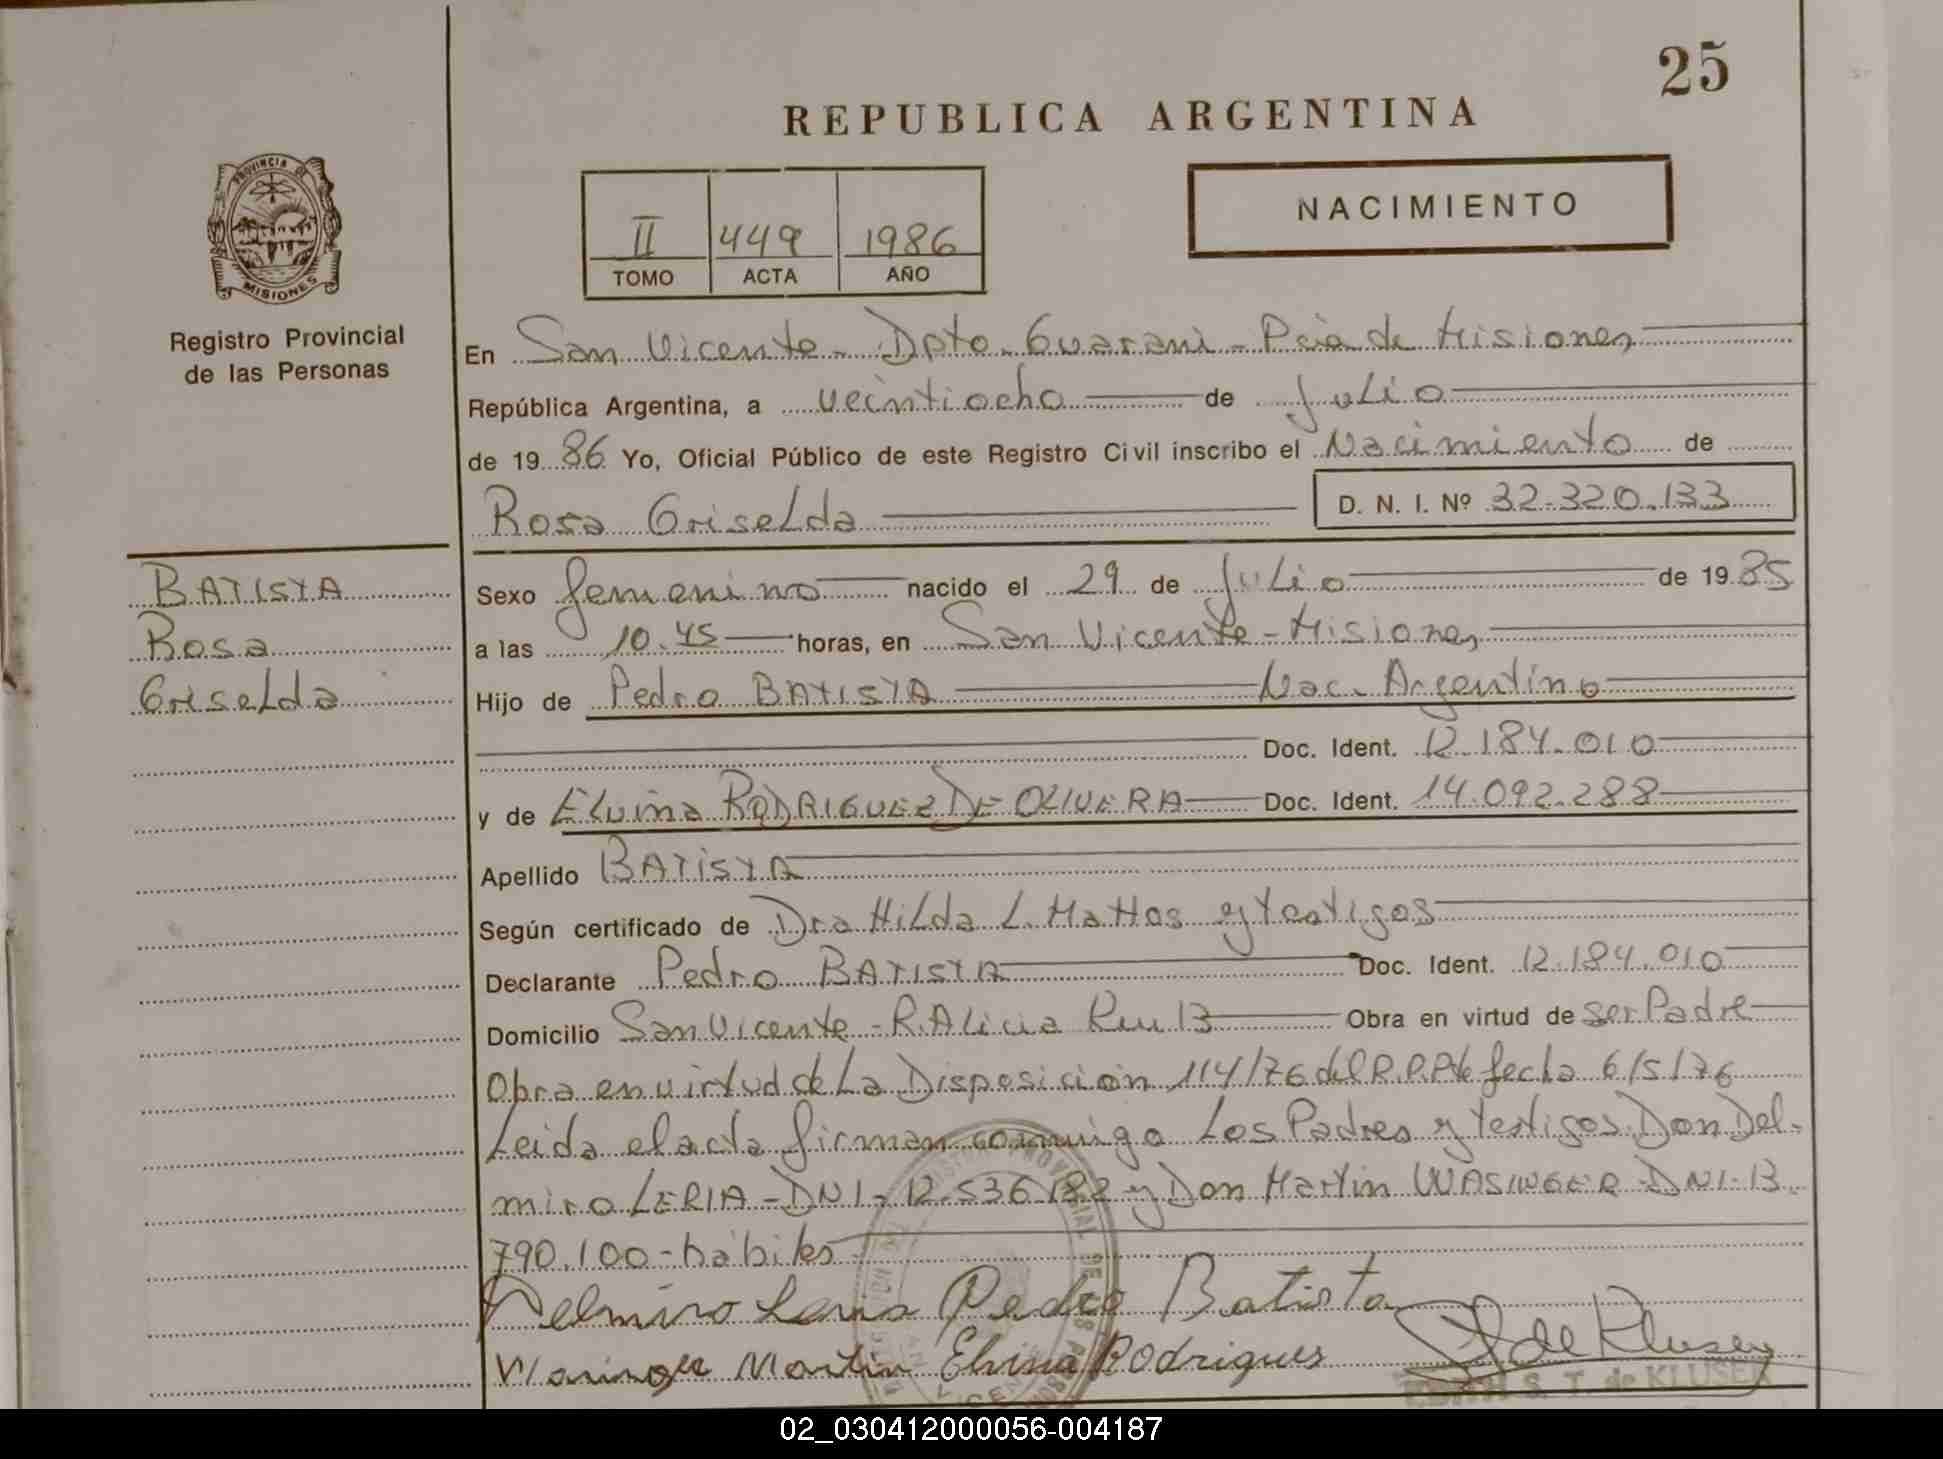 25
REPUBLICA ARGENTINA
NACIMIENTO
II 449 1986
TOMO ACTA AÑO
PROVINCIA DE
MISIONES
Registro Provincial
de las Personas
En San Vicente - Dpto. Guarani - Pcia de Misiones
República Argentina, a veintiocho de Julio
de 1986 Yo, Oficial Público de este Registro Civil inscribo el Nacimiento de
Rosa Griselda D. N. I. Nº 32.320.133
BATISTA
Rosa
Griselda
Sexo femenino nacido el 29 de Julio de 1985
a las 10.45 horas, en San Vicente - Misiones
Hijo de Pedro BATISTA Nac. Argentino
Doc. Ident. 12.184.010
y de Elvina RODRIGUEZ DE OLIVERA Doc. Ident. 14.092.288
Apellido BATISTA
Según certificado de Dra Hilda L. Mattos y testigos
Declarante Pedro BATISTA Doc. Ident. 12.184.010
Domicilio San Vicente - R. Alicia Km 13 Obra en virtud de ser Padre
Obra en virtud de La Disposición 114/76 del R.P.P de fecha 6/5/76
Leida el acta firman conmigo Los Padres y testigos Don Del-
miro LERIA - DNI - 12.536.182 y Don Martin WASINGER DNI - 13.
790.100 - habiles
Delmiro Leria Pedro Batista
Martin Elvina Rodrigues de Klusey
S. T. de KLUSEY
02_030412000056-004187